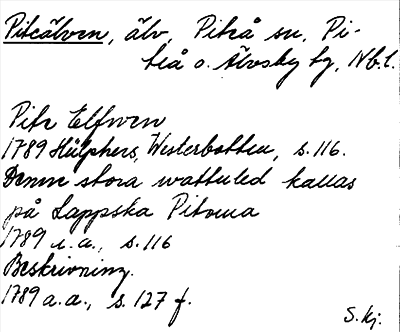 Piteälven, älv, Piteå sn, Pi-
teå o. Älvsby tg, Nb.l.
Pite Elfwen
1789 Hülphers, Westerbotten, s. 116.
Denne stora wattuled kallas
på Lappska Pitoma
1789 a.a., s. 116
Beskrivning.
1789 a.a., s. 127 f.
S. Kj.